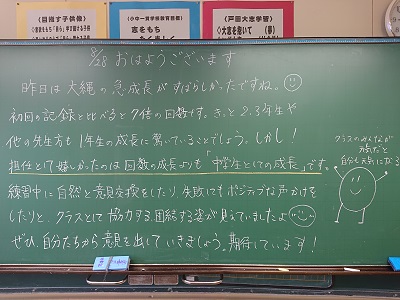 目指す子供像
小中一貫学校教育目標
志をもち
戸田大志学習
大志を抱いて
5/28 おはようございます
昨日は大縄の急成長がすばらしかったですね。
初回の記録と比べると7倍の回数です。きっと2.3年生や
他の先生方も1年生の成長に驚いていることでしょう。しかし!
担任として嬉しかったのは回数の成長よりも「中学生としての成長」です。
練習中に自然と意見交換をしたり、失敗にもポジティブな声かけを
したりと、クラスとして協力する、団結する姿が見えていましたよ
ぜひ、自分たちから意見を出していきましょう。期待しています!
クラスのみんなが
元気だと
自分も元気になる